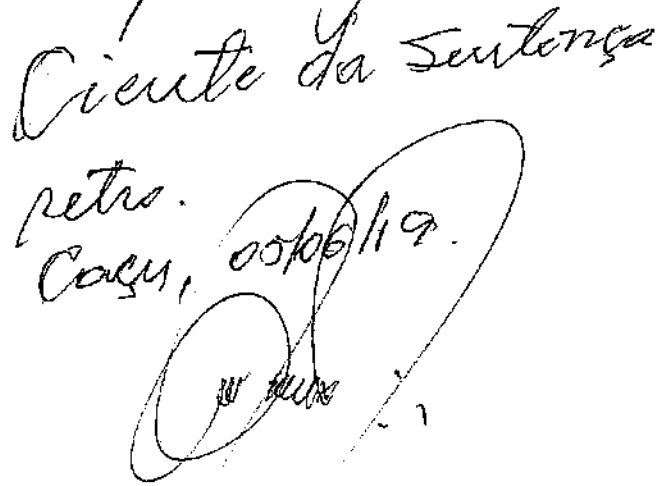 Ciente da Sentença
retro.
Caçu, 05/06/19.